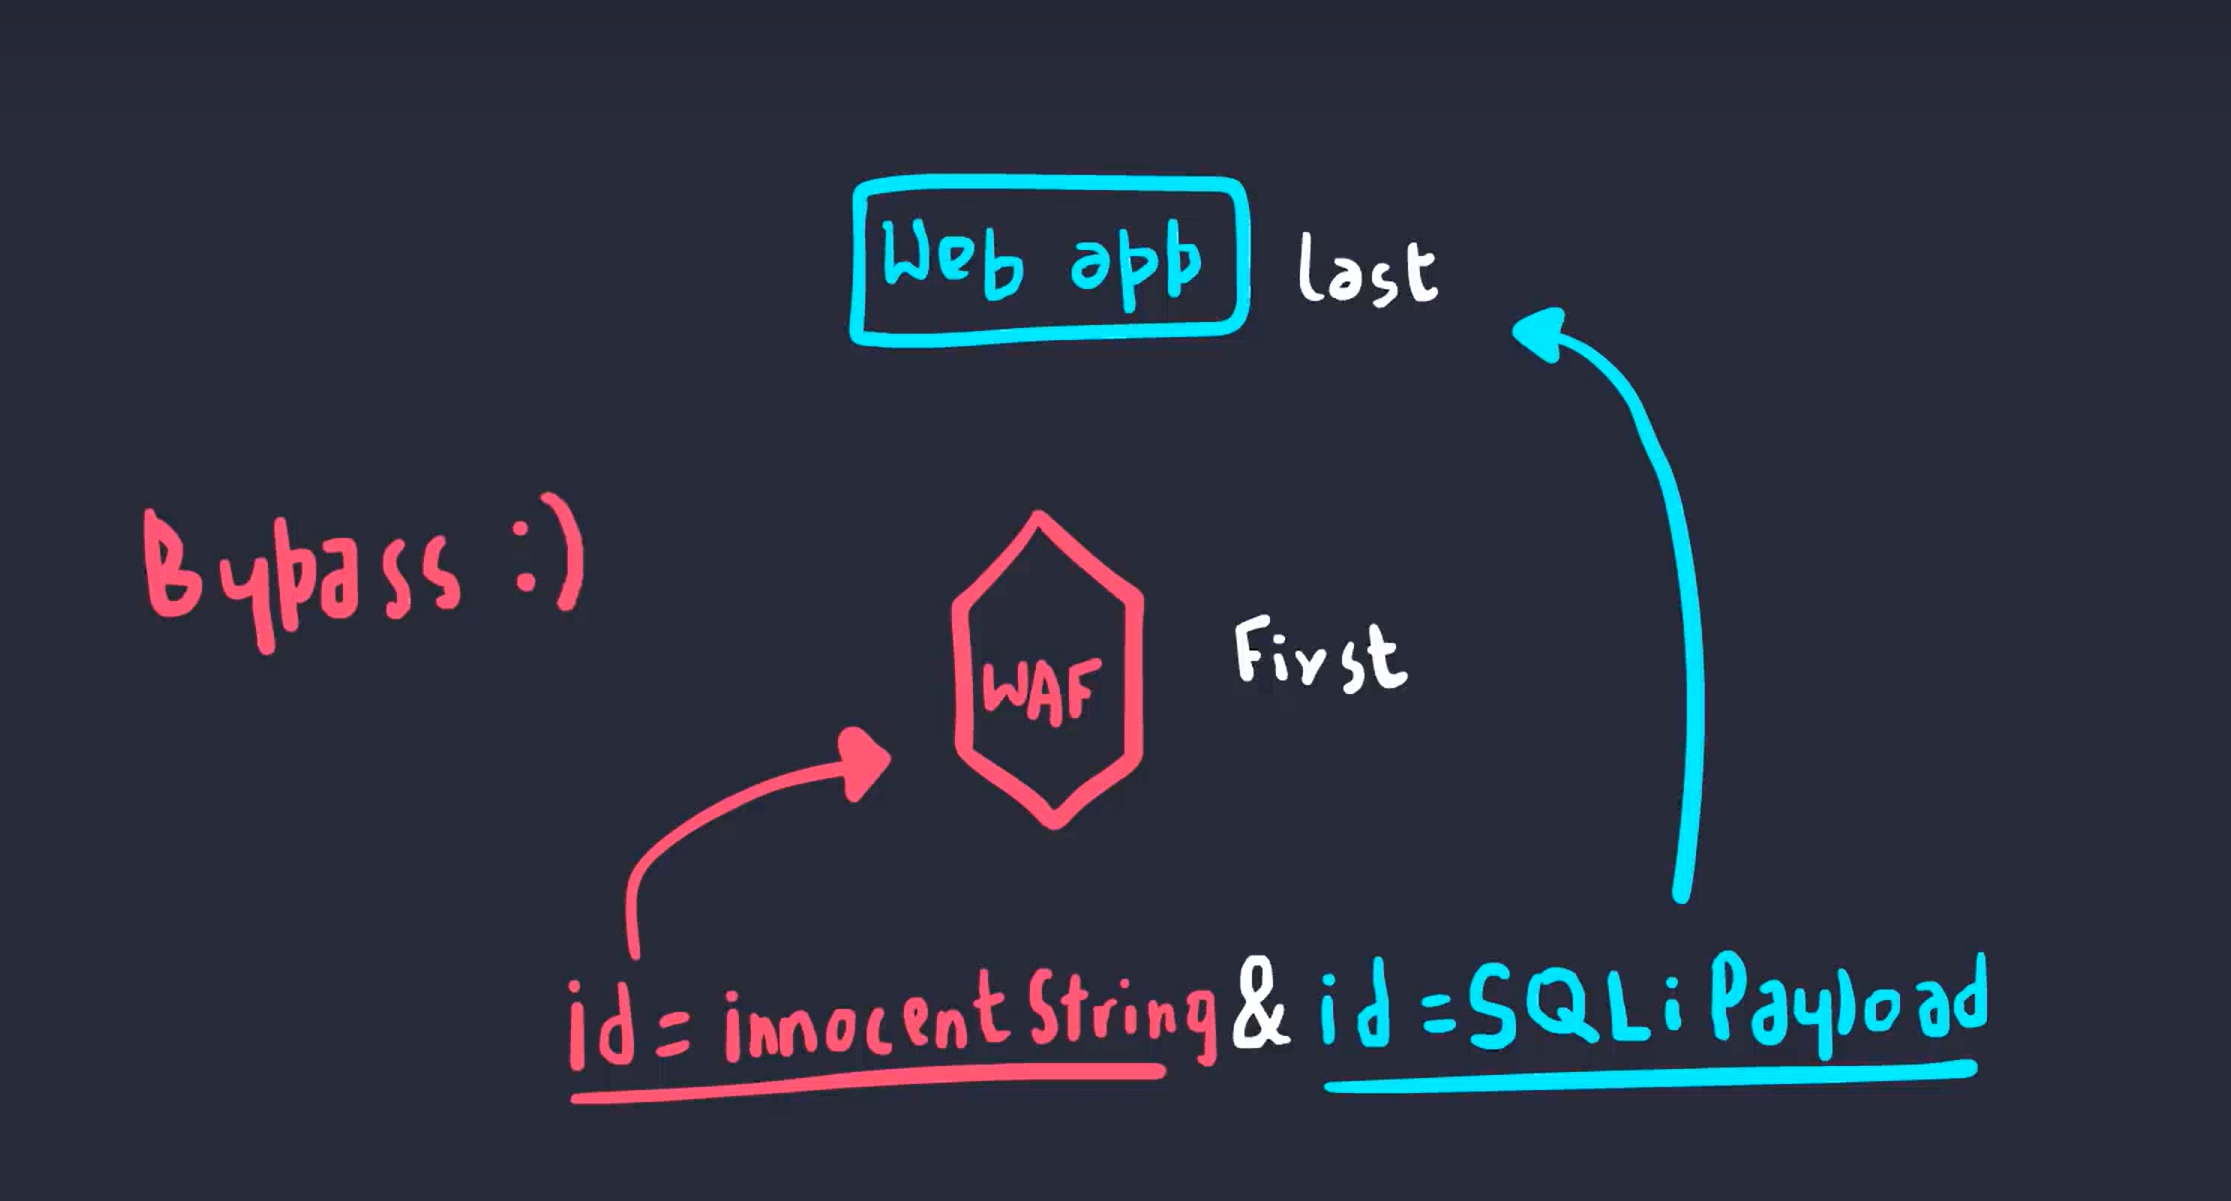 Web app last
Bypass :)
WAF First
id=innocentString & id=SQLiPayload